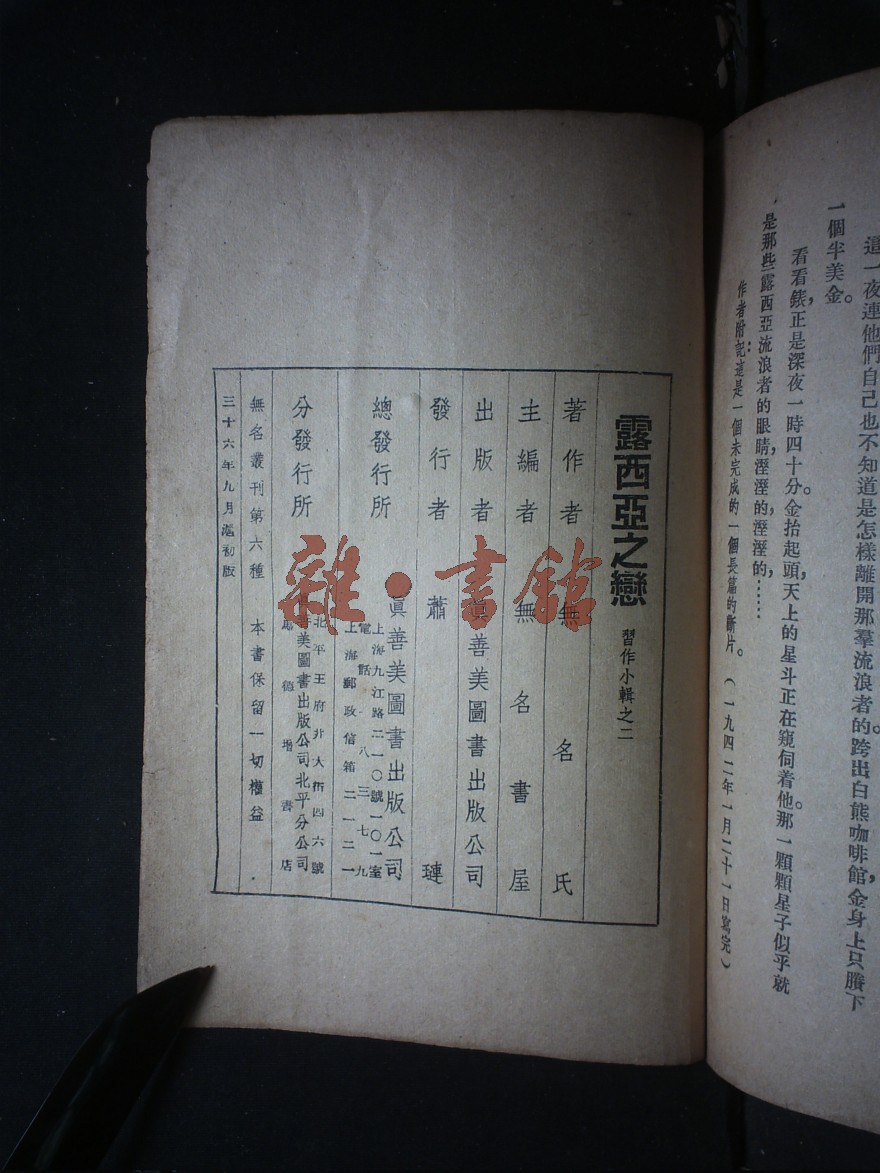 這一夜連他們自己也不知道是怎樣離開那羣流浪者的跨出白熊咖啡館，金身上只賸下
一個半美金。
看看錶，正是深夜一時四十分。金抬起頭，天上的星斗正在窺伺着他。那一顆顆星子似乎就
是那些露西亞流浪者的眼睛，溼溼的，溼溼的，……
作者附記：這是一個未完成的一個長篇的斷片。（一九四二年一月二十一日寫完）
露西亞之戀 習作小輯之二
著作者 無名氏
主編者 無名書屋
出版者 眞善美圖書出版公司
發行者 蕭 璉
總發行所 眞善美圖書出版公司
上海九江路二一〇號一〇一室
電話·八三七九
上海郵政信箱二一二一
分發行所
北平王府井大街四六號
眞善美圖書出版公司北平分公司
德增書店
無名叢刊第六種 本書保留一切權益
三十六年九月滬初版
雜·書館